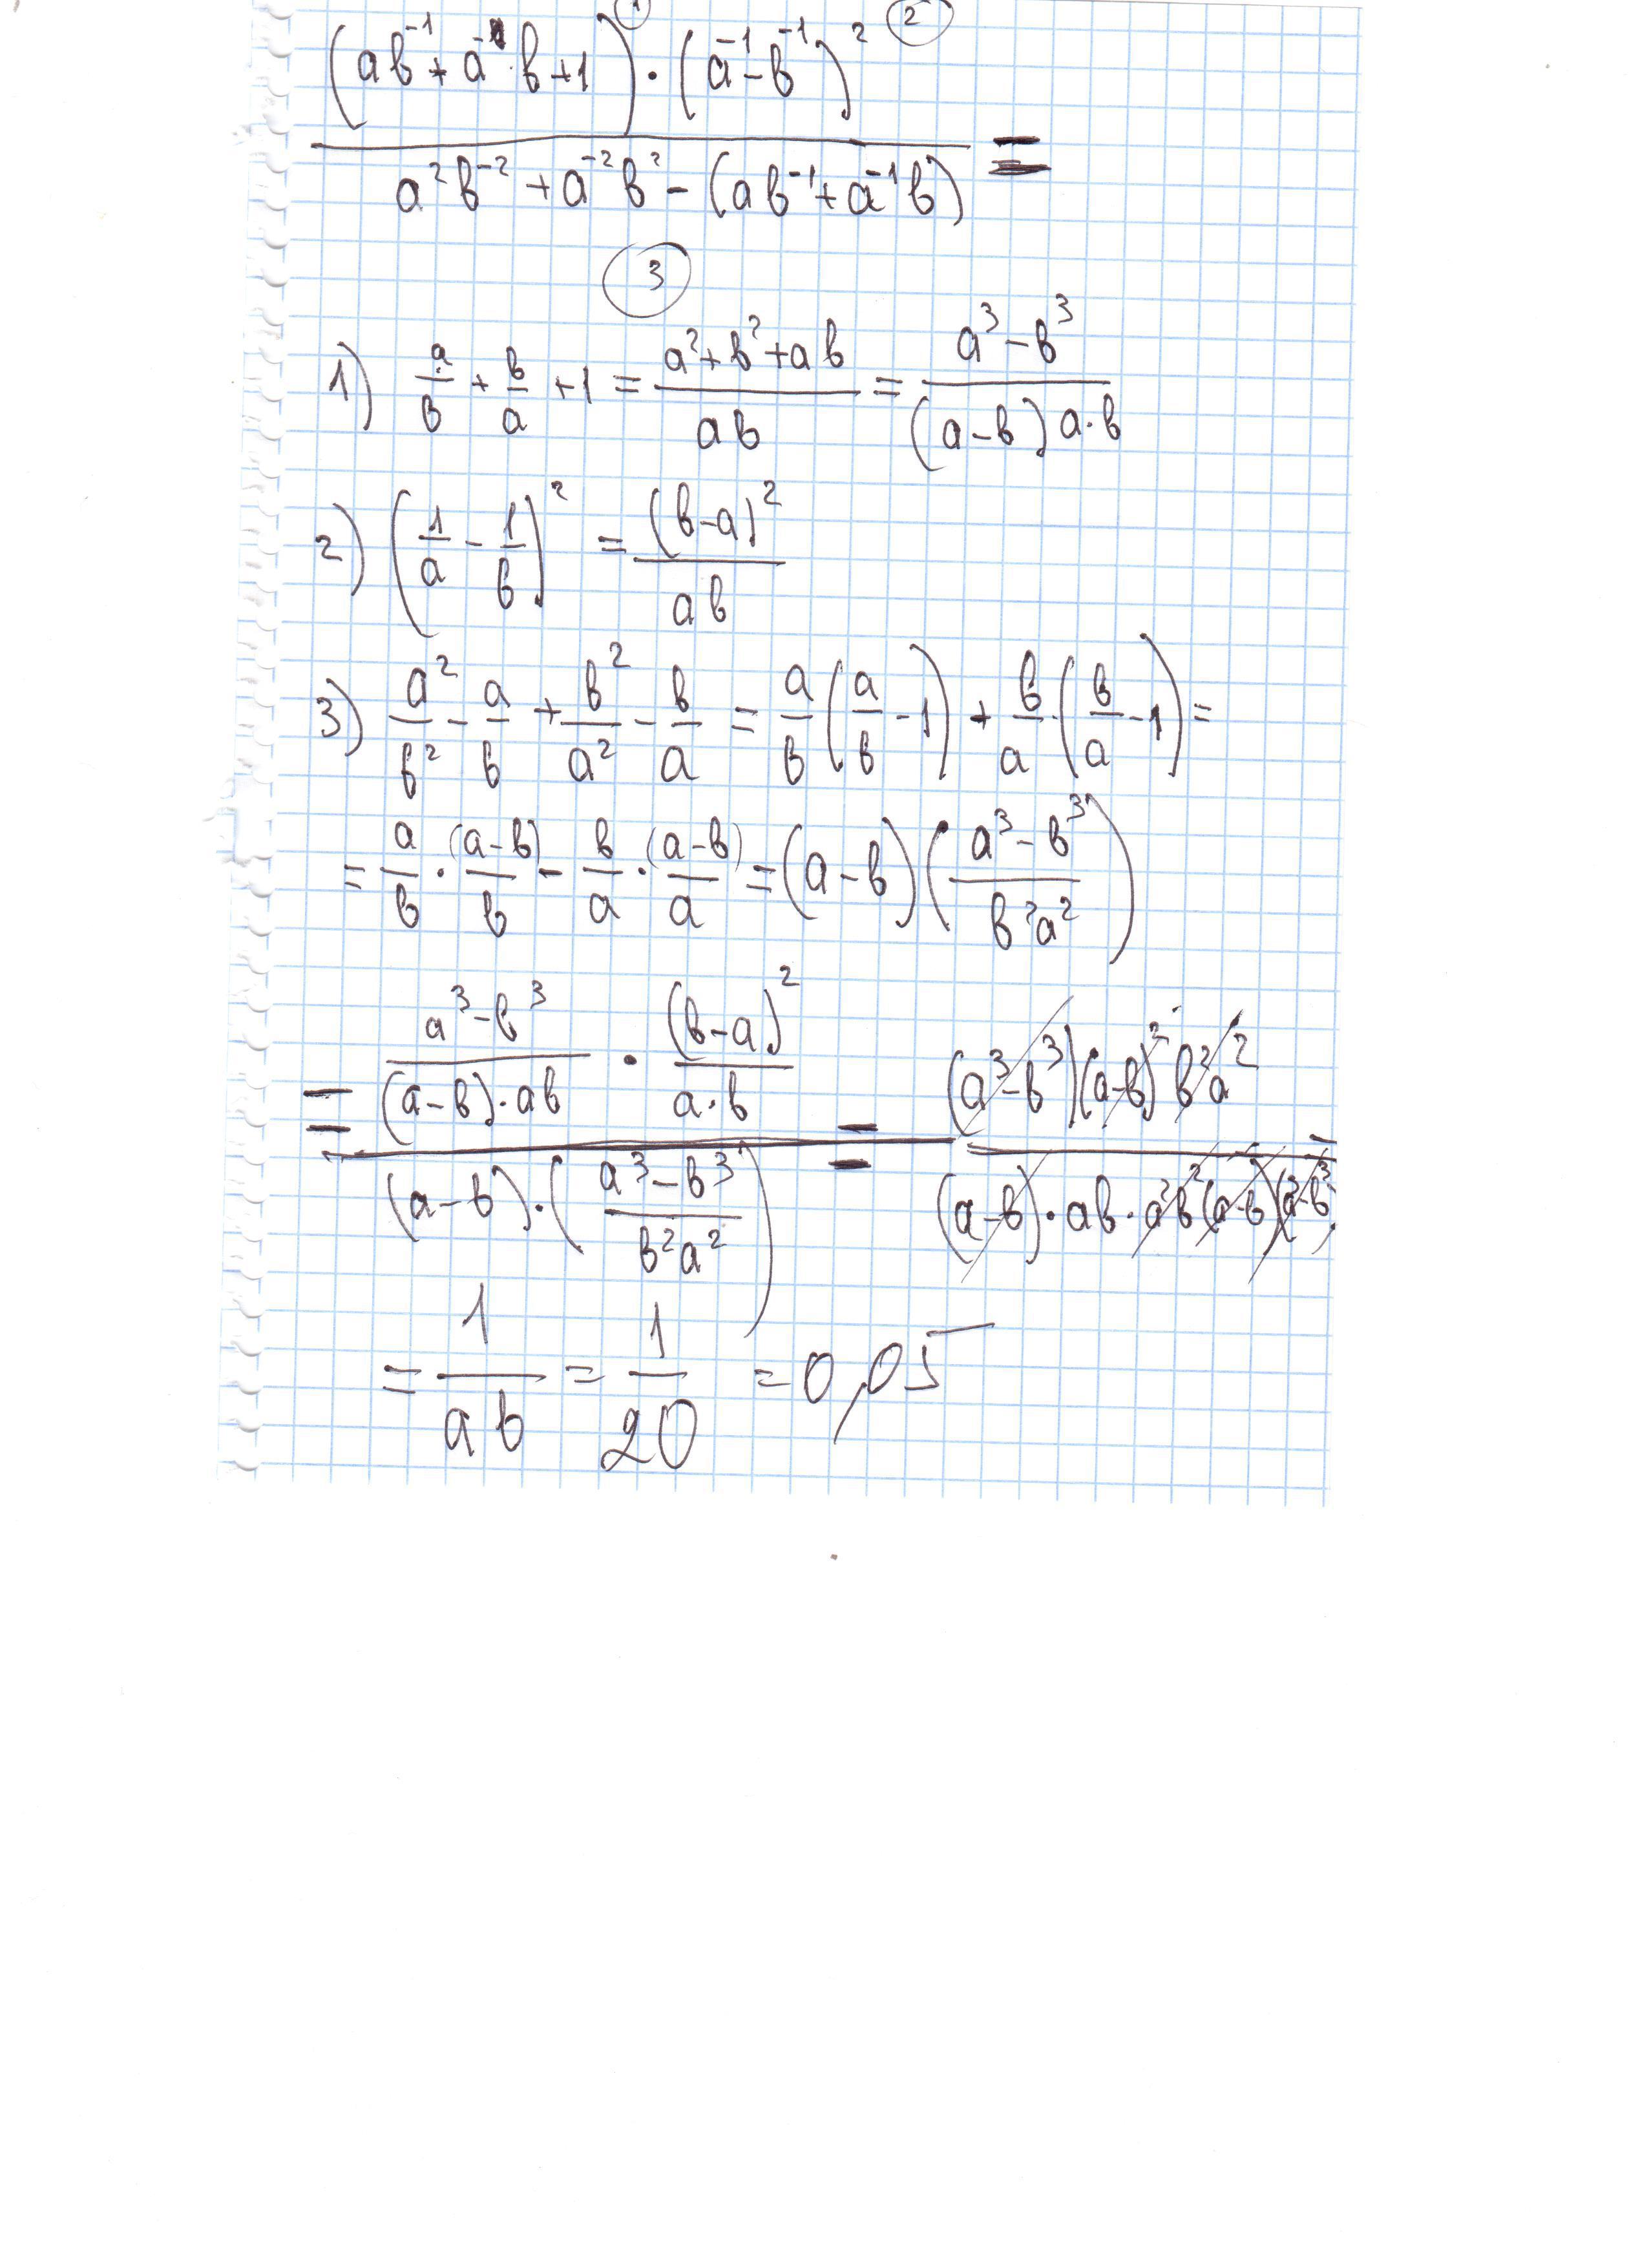 ① ②
((ab⁻¹ + a⁻¹·b + 1)·(a⁻¹ - b⁻¹)²) / (a²b⁻² + a⁻²b² - (ab⁻¹ + a⁻¹b)) =
③
1) a/b + b/a + 1 = (a² + b² + ab)/(ab) = (a³ - b³)/((a - b) a·b)
2) (1/a - 1/b)² = (b - a)²/(ab)
3) a²/b² - a/b + b²/a² - b/a = a/b (a/b - 1) + b/a·(b/a - 1) =
= a/b · (a - b)/b - b/a · (a - b)/a = (a - b)((a³ - b³)/(b²a²))
= ((a³ - b³)/((a - b)·ab) · (b - a)²/(a·b)) / ((a - b)·((a³ - b³)/(b²a²))) = ((a³ - b³)(a - b)² b²a²)/((a - b)·ab·a²b²(a - b)(a³ - b³)) =
= 1/(ab) = 1/20 = 0,05